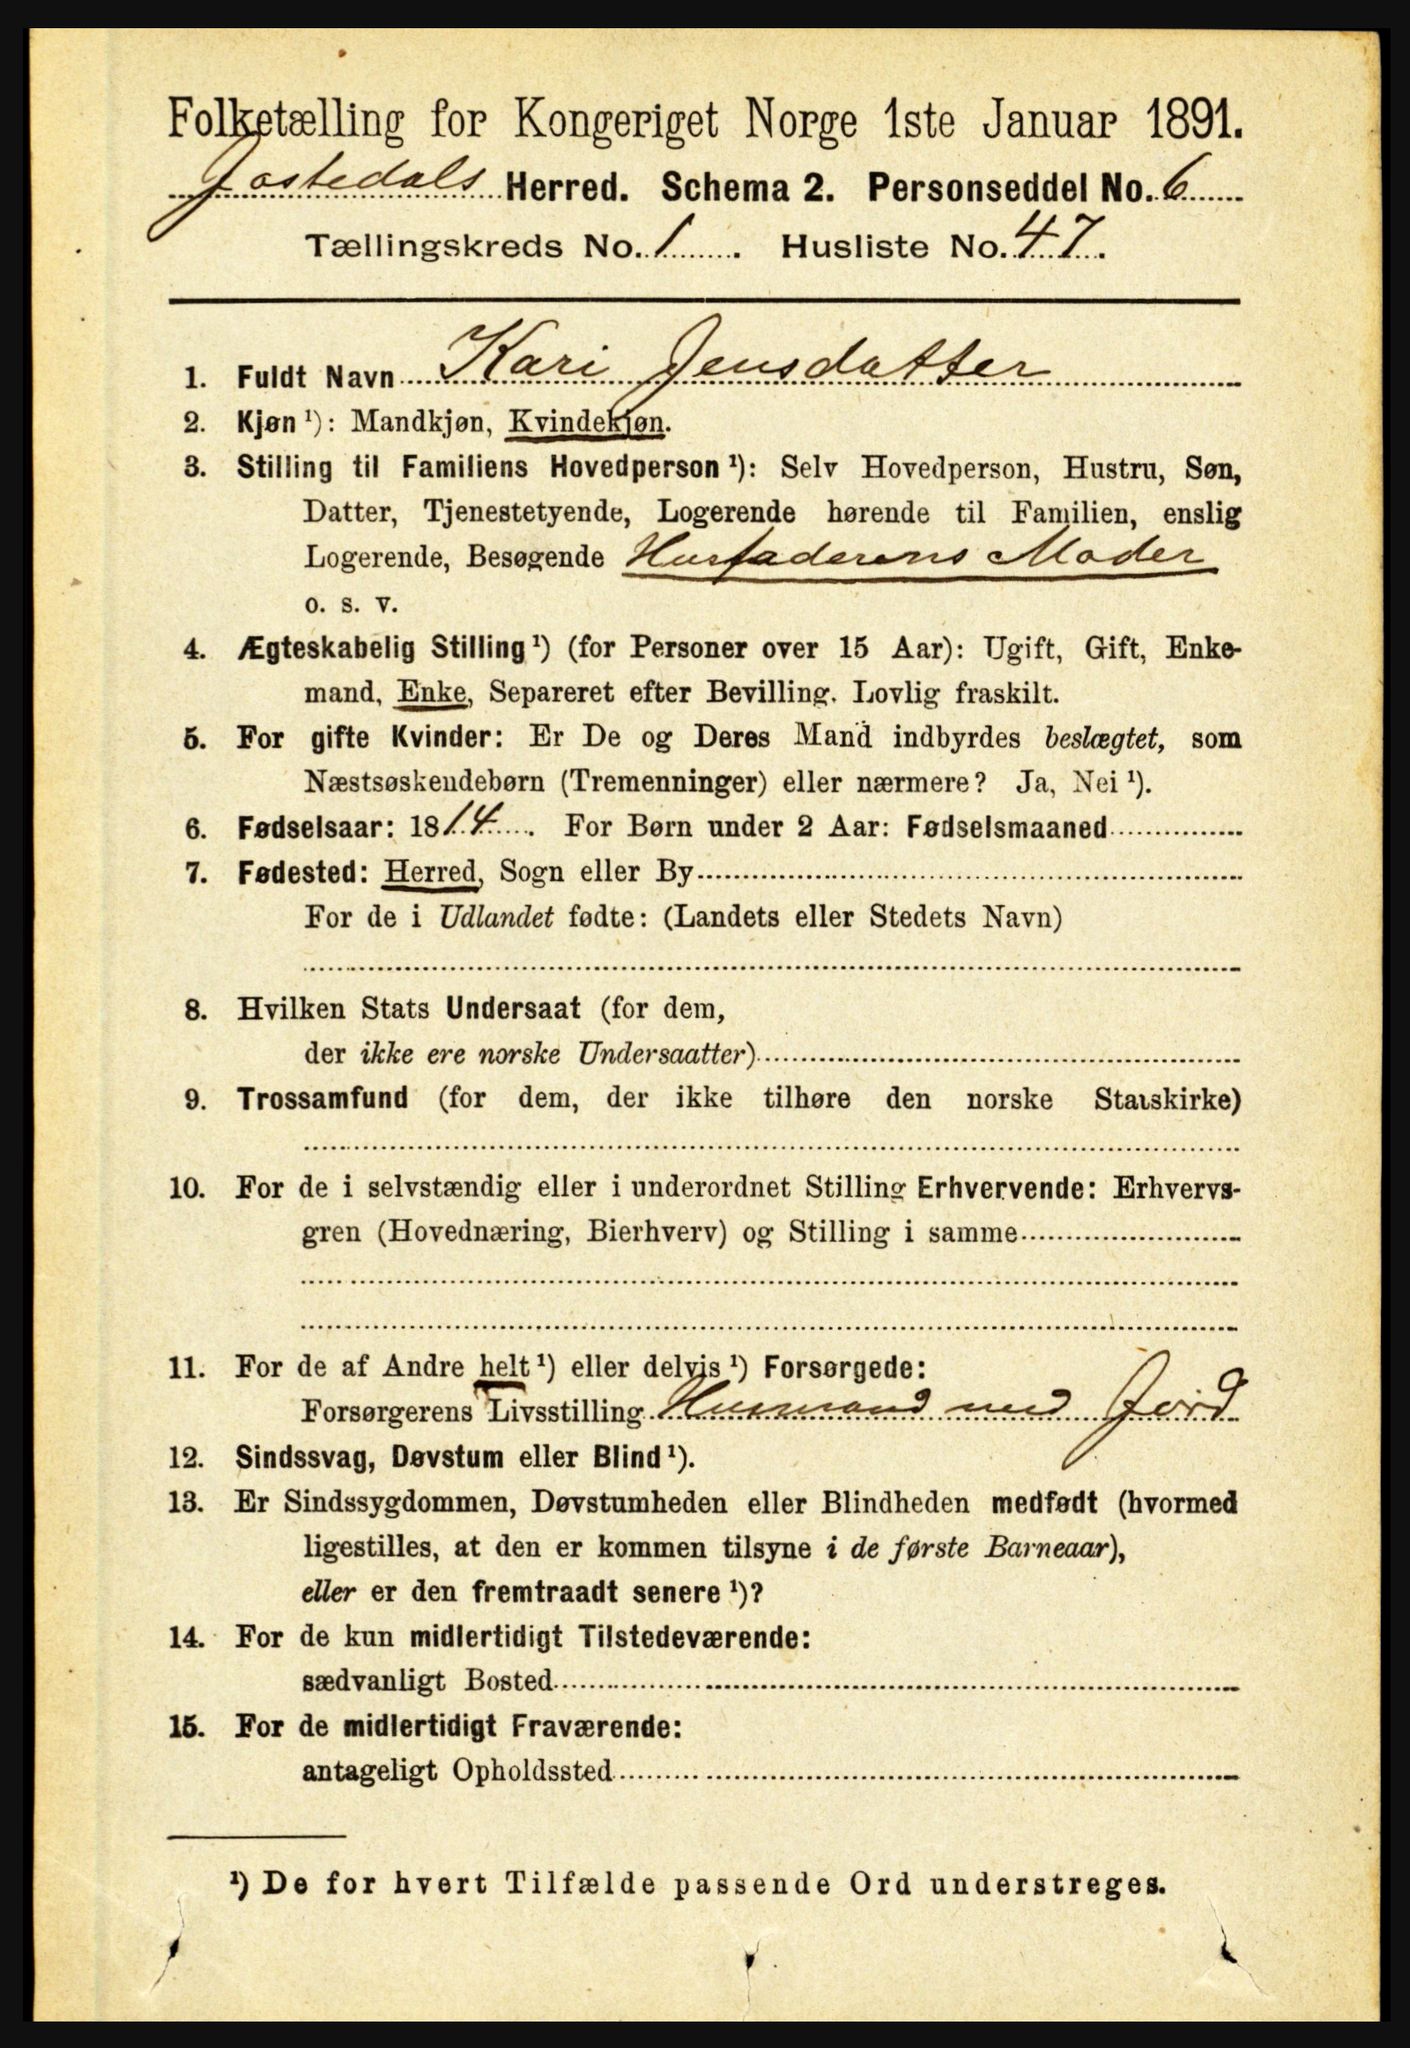 Folketælling for Kongeriget Norge 1ste Januar 1891.
Jostedals Herred. Schema 2. Personseddel No. 6
Tællingskreds No. 1. Husliste No. 47.
1. Fuldt Navn Kari Jensdatter
2. Kjøn ¹): Mandkjøn, Kvindekjøn.
3. Stilling til Familiens Hovedperson ¹): Selv Hovedperson, Hustru, Søn,
Datter, Tjenestetyende, Logerende hørende til Familien, enslig
Logerende, Besøgende Husfaderens Moder
o. s. v.
4. Ægteskabelig Stilling ¹) (for Personer over 15 Aar): Ugift, Gift, Enke-
mand, Enke, Separeret efter Bevilling. Lovlig fraskilt.
5. For gifte Kvinder: Er De og Deres Mand indbyrdes beslægtet, som
Næstsøskendebørn (Tremenninger) eller nærmere? Ja, Nei ¹).
6. Fødselsaar: 1814. For Børn under 2 Aar: Fødselsmaaned
7. Fødested: Herred, Sogn eller By
For de i Udlandet fødte: (Landets eller Stedets Navn)
8. Hvilken Stats Undersaat (for dem,
der ikke ere norske Undersaatter)
9. Trossamfund (for dem, der ikke tilhøre den norske Statskirke)
10. For de i selvstændig eller i underordnet Stilling Erhvervende: Erhvervs-
gren (Hovednæring, Bierhverv) og Stilling i samme
11. For de af Andre helt ¹) eller delvis ¹) Forsørgede:
Forsørgerens Livsstilling Husmand med Jord
12. Sindssvag, Døvstum eller Blind ¹).
13. Er Sindssygdommen, Døvstumheden eller Blindheden medfødt (hvormed
ligestilles, at den er kommen tilsyne i de første Barneaar),
eller er den fremtraadt senere ¹)?
14. For de kun midlertidigt Tilstedeværende:
sædvanligt Bosted
15. For de midlertidigt Fraværende:
antageligt Opholdssted
¹) De for hvert Tilfælde passende Ord understreges.